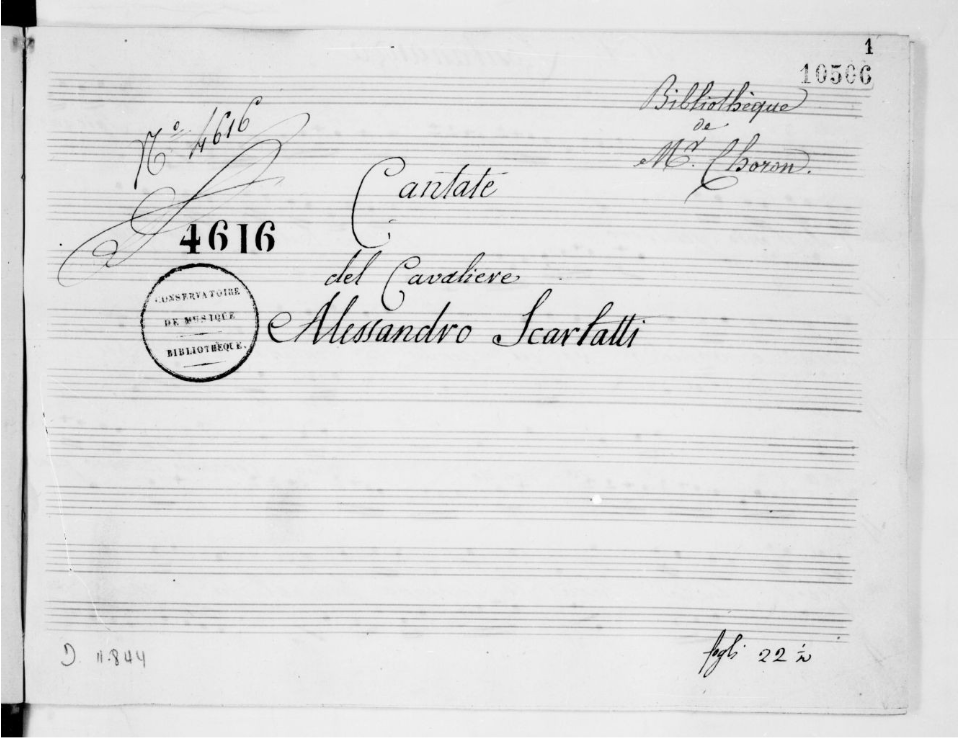 1
10506
Bibliothèque
de
Mr. Choron.
No. 4616
Cantate
4616
del Cavaliere
Alessandro Scarlatti
CONSERVATOIRE
DE MUSIQUE
BIBLIOTHÈQUE.
D 11.844
fogli 22 ½